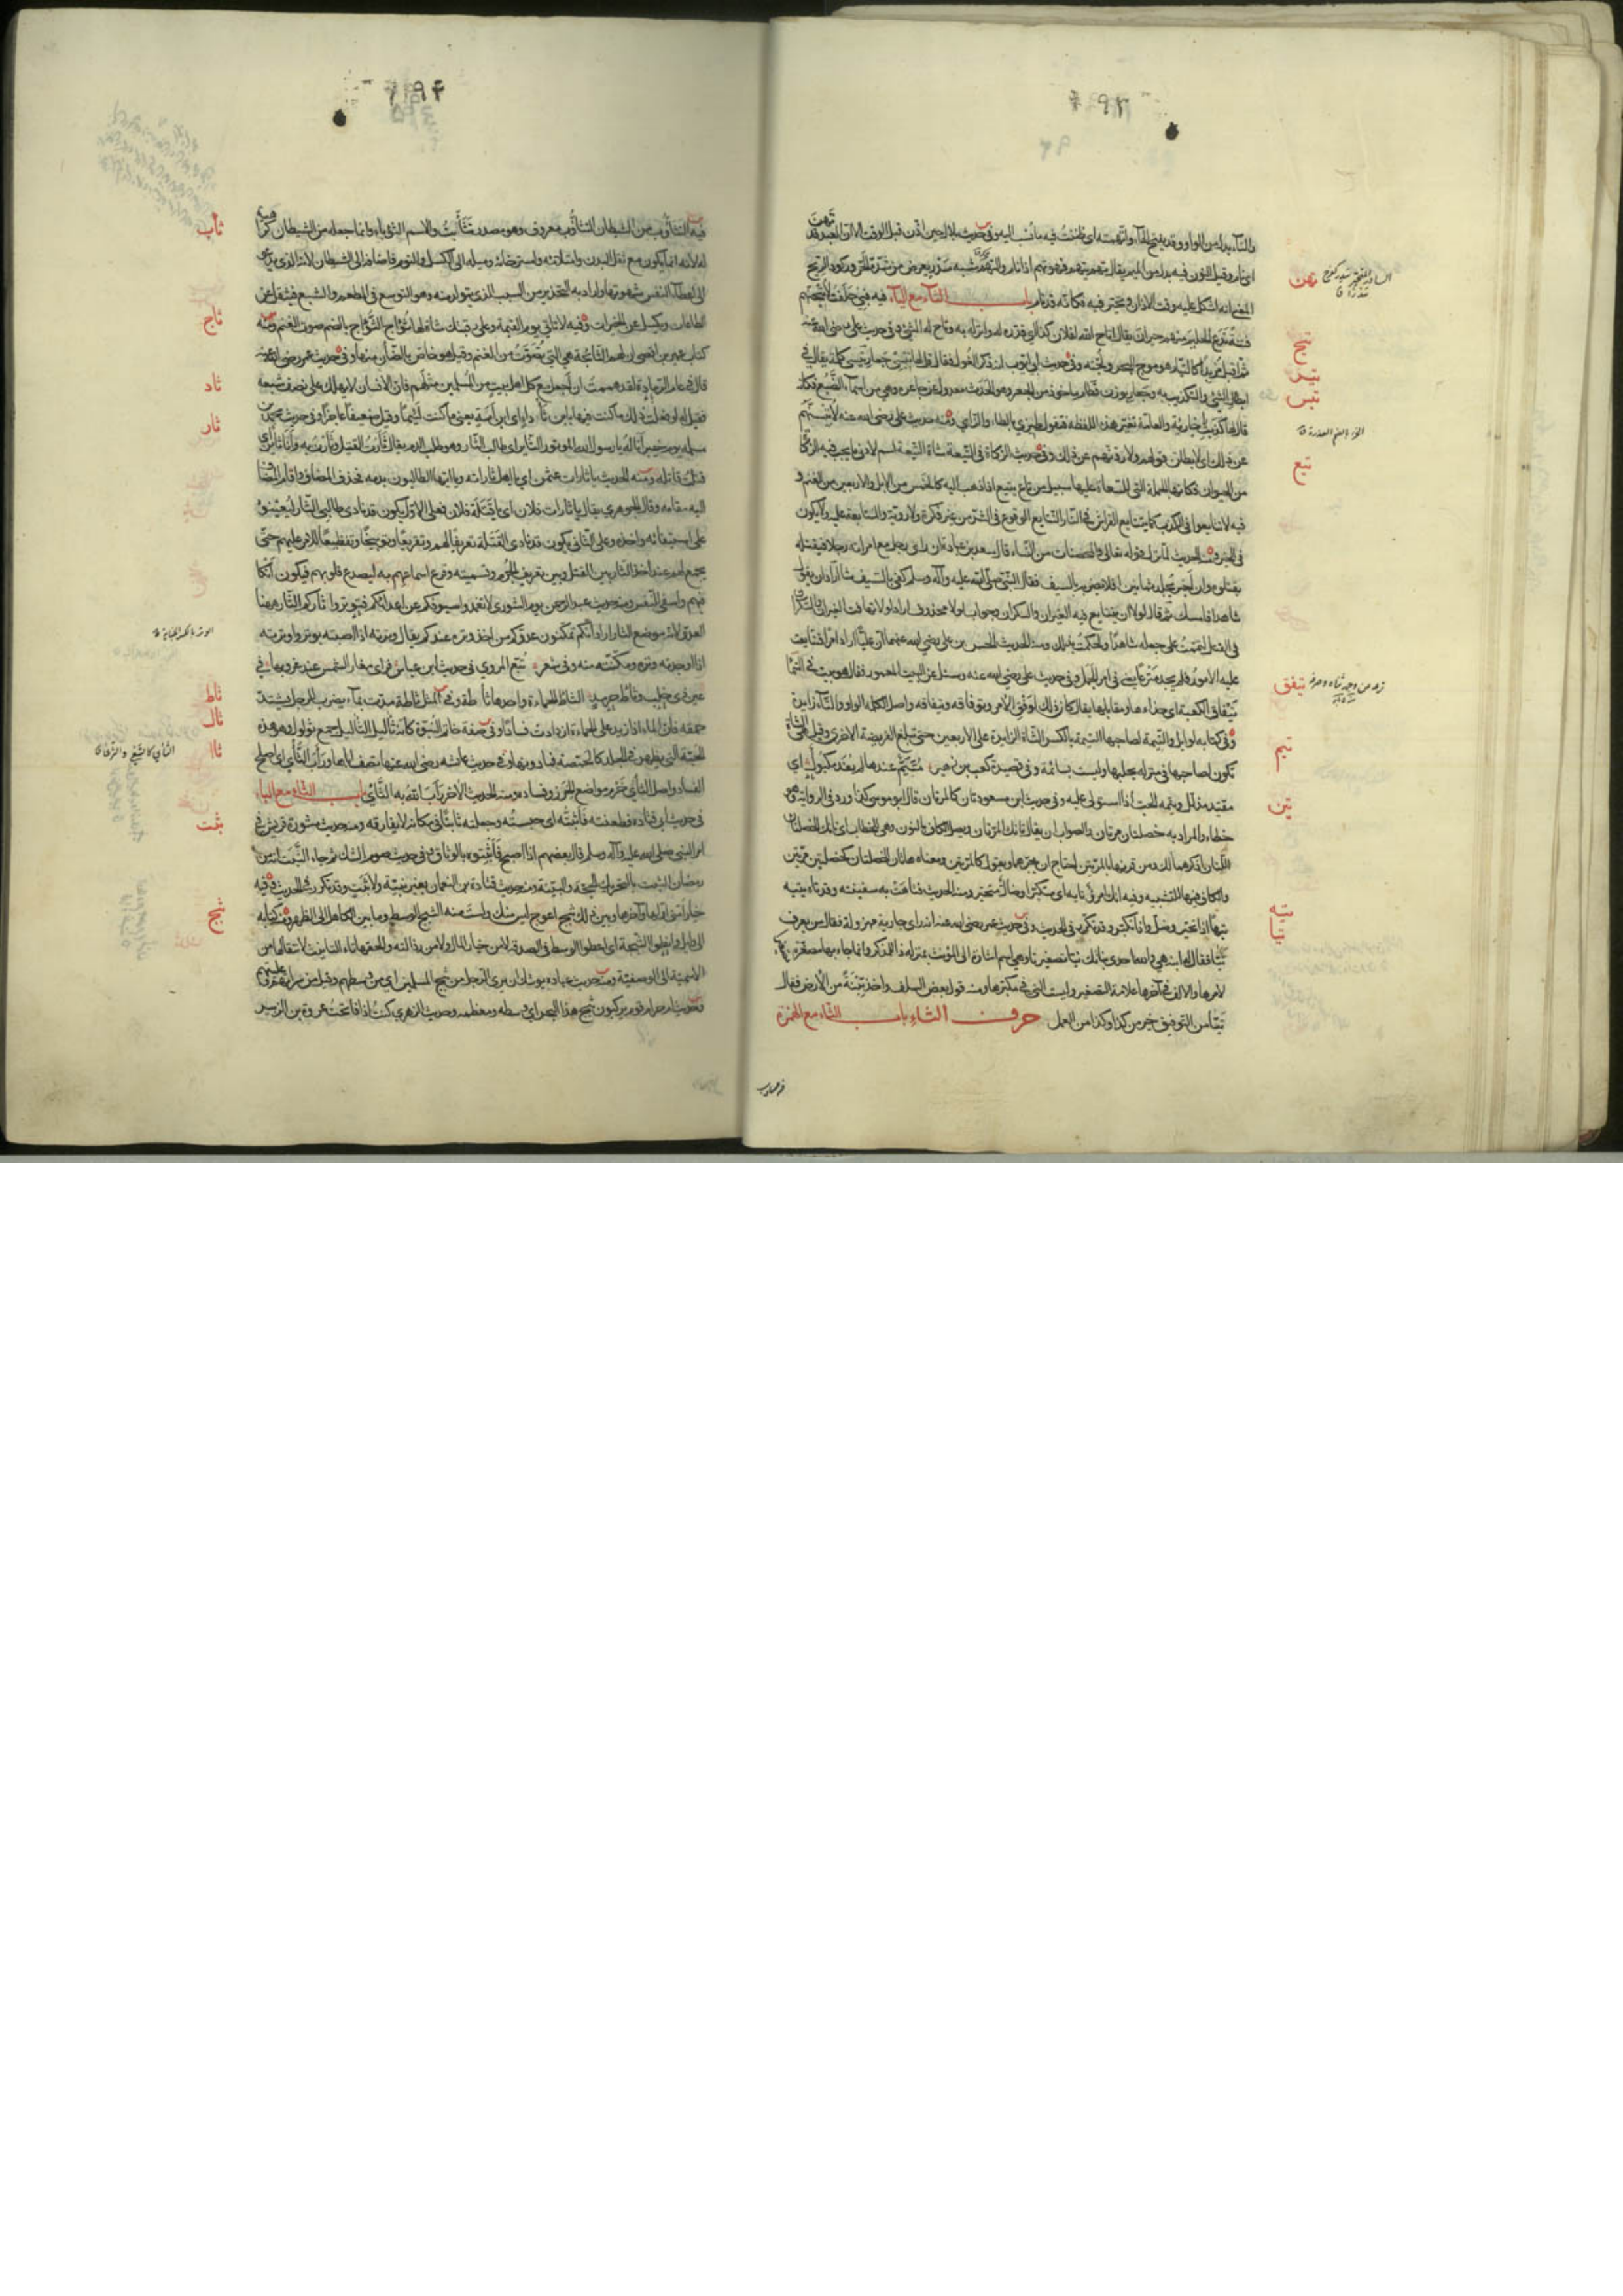 والتاء بدل من الواو وقد يفتح الهاء واتهمته اى ظننت فيه ما نسب اليه وفى حديث بلال حين اذن قبل الوقت الا ان العبد قد تهن
اى نام وقيل النون فيه بدل من الميم يقال تهم يتهم فهو تهم اذا نام والتهم شبه سدر يعرض من شدة الحر وركود الريح
المعنى انه اشكل عليه وقت الاذان وتحير فيه فكانه قد نام باب التاء مع الياء فيه فبى حلفت لاتيحنهم
فتنة تدع الحليم منهم حيران يقال اتاح الله لفلان كذا اى قدره له وانزله به وتاح له الشئ وفى حديث على رضى الله عنه
ثم اقبل مزبدا كالتيار هو موج البحر ولجته وفى حديث ابى ايوب انه ذكر الغول فقال قل لها تيسى جعار تيسى كلمة يقال فى
ابطال الشئ والتكذيب به وجعار بوزن قطام ماخوذ من الجعر وهو الحدث معدول عن جاعرة وهى من اسماء الضبع فكانه
قال لها كذبت يا خارية والعامة تغير هذه اللفظة فتقول طيزى بالطاء والزاى ومنه حديث على رضى الله عنه لاتيسنهم
عن ذلك اى لابطلن قولهم ولاردنهم عن ذلك وفى حديث الزكاة فى التيعة شاة التيعة اسم لادنى ما يجب فيه الزكاة
من الحيوان فكانها الجملة التى للسعاة عليها سبيل من تاع يتيع اذا ذهب اليه كالخمس من الابل والاربعين من الغنم و
فيه لا تتايعوا فى الكذب كما يتتايع الفراش فى النار التتايع الوقوع فى الشر من غير فكرة ولا روية والمتابعة عليه ولا يكون
فى الخير ومنه الحديث لما نزل قوله تعالى والمحصنات من النساء قال سعد بن عبادة ان راى رجل مع امراته رجلا فيقتله
يقتلونه وان اخبر يجلد ثمانين افلا نضربه بالسيف فقال النبى صلى الله عليه وآله وسلم كفى بالسيف شا اراد ان يقول
شاهدا فامسك ثم قال لولا ان يتتايع فيه الغيران والسكران وجواب لولا محذوف اراد لولا تهافت الغيران والسكران
فى القتل لتممت على جعله شاهدا ولحكمت بذلك ومنه الحديث الحسن بن على رضى الله عنهما ان عليا اراد امرا فتتايعت
عليه الامور فلم يجد منزعا يعنى فى امر الجمل وفى حديث على رضى الله عنه وسئل عن البيت المعمور فقال هو بيت فى السماء
تيفاق الكعبة اى حذاءها ومقابلها يقال كان ذلك لوفق الامر وتوفاقه وتيفاقه واصل الكلمة الواو والتاء زايدة
وفى كتابه لوايل والتيمة لصاحبها التيمة بالكسر الشاة الزايدة على الاربعين حتى تبلغ الفريضة الاخرى وقيل هى الشاة
تكون لصاحبها فى منزله يحلبها وليست بسائمة وفى قصيدة كعب بن زهير متيم عندها لم يفد مكبول اى
مقيد مذلل وتيمه الحب اذا استولى عليه وفى حديث ابن مسعود تان كالمرتان قال ابو موسى كذا ورد فى الرواية وهو
خطاء والمراد به خصلتان مرتان والصواب ان يقال تانك المرتان ويصل الكاف بالنون وهى للخطاب اى تانك الخصلتان
اللتان اذكرهما لك ومن قرنها بالمرتين احتاج ان يجرهما ويقول كالمرتين ومعناه هاتان الخصلتان كخصلتين مرتين
والكاف فيها للتشبيه وفيه انك امرؤ تايه اى متكبر او ضال متحير ومنه الحديث فتاهت به سفينته وقد تاه يتيه
تيها اذا تحير وضل واذا تكبر وقد تكرر فى الحديث وفى حديث عمر رضى الله عنه انه راى جارية مهزولة فقال من يعرف
تيا فقال له ابنه هى والله احدى بناتك تيا تصغير تا وهى اسم اشارة الى المؤنث بمنزلة ذا للمذكر وانما جاء بها مصغرة
لامرها والالف فى آخرها علامة التصغير وليست التى فى مكبرها ومنه قول بعض السلف واخذ تبنة من الارض فقال
تيا من التوفيق خير من كذا وكذا من العمل حرف الثاء باب الثاء مع الهمزة
تهن
تيح
تير
تيس
تيع
تيفق
تيم
تين
تيه
تيا
فيه التثاؤب من الشيطان التثاؤب معروف وهو مصدر تثاءبت والاسم الثوباء وانما جعله من الشيطان كراهية
له لانه انما يكون مع ثقل البدن وامتلائه واسترخائه وميله الى الكسل والنوم فاضافه الى الشيطان لانه الذى يدعو
الى اعطاء النفس شهوتها واراد به التحذير من السبب الذى يتولد منه وهو التوسع فى المطعم والشبع فيثقل عن
الطاعات ويكسل عن الخيرات وفيه لا تاتى يوم القيمة وعلى رقبتك شاة لها ثؤاج الثؤاج بالضم صوت الغنم ومنه
كتاب عمير بن افصى ان لهم الثائجة هى التى تصوت من الغنم وقيل هو خاص بالضان منها وفى حديث عمر رضى الله عنه
قال فى عام الرمادة لقد هممت ان اجعل مع كل اهل بيت من المسلمين مثلهم فان الانسان لا يهلك على نصف شبعه
فقيل له لو فعلت ذلك ما كنت فيها بابن ثاداء اى ابن امة يعنى ما كنت لئيما وقيل ضعيفا عاجزا وفى حديث محمد بن
سلمة يوم خيبر انا له يا رسول الله الموتور الثاير اى طالب الثار وهو طلب الدم يقال ثارت القتيل وثارت به وانا ثاير اى
قتلت قاتله ومنه الحديث يا ثارات عثمن اى يا اهل ثاراته ويا ايها الطالبون بدمه فحذف المضاف واقام المضاف
اليه مقامه وقال الجوهرى يقال يا ثارات فلان اى يا قتلة فلان فعلى الاول يكون قد نادى طالبى الثار ليعينوه
على استيفائه واخذه وعلى الثانى يكون قد نادى القتلة تعريفا لهم وتقريعا وتوبيخا وتفظيعا للامر عليهم حتى
يجمع لهم عند اخذ الثار بين القتل وبين تعريف الجرم وتسميته وقرع اسماعهم به ليصدع قلوبهم فيكون انكا
فيهم واشفى للنفس ومنه حديث عبد الرحمن يوم الشورى لا تغمدوا سيوفكم عن اعدائكم فتوتروا ثاركم الثار ههنا
العدو لانه موضع الثار اراد انكم تمكنون عدوكم من اخذ وتره عندكم يقال وترته اذا اصبته بوتر واوترته
اذا اوجدته وتره ومكنته منه وفى شعر تبع المروى فى حديث ابن عباس فراى مغار الشمس عند غروبها فى
عين ذى خلب وثاط حرمد الثاط الحماة واحدها ثاطة وفى المثل ثاطة مدت بماء يضرب للرجل يشتد
حمقه فان الماء اذا زيد على الحماة ازدادت فسادا وفى صفة خاتم النبوة كانه ثآليل الثآليل جمع ثؤلول وهو هذه
الحبة التى يظهر فى الجلد كالحمصة فما دونها وفى حديث عائشة رضى الله عنها تصف اباها وراب الثأى اى اصلح
الفساد واصل الثأى خرم مواضع الخرز وفساده ومنه الحديث الآخر رأب الله به الثأى باب الثاء مع الباء
فى حديث ابى قتادة فطعنته فاثبته اى حبسته وجعلته ثابتا فى مكانه لا يفارقه ومنه حديث مشورة قريش فى
امر النبى صلى الله عليه وآله وسلم قال بعضهم اذا اصبح فاثبتوه بالوثاق وفى حديث صوم الشك ثم جاء الثبت انه من
رمضان الثبت بالتحريك الحجة والبينة ومنه حديث قتادة بن النعمان بغير بينة ولا ثبت وقد تكرر فى الحديث وفيه
خيار امتى اولها وآخرها وبين ذلك ثبج اعوج ليس منك ولست منه الثبج الوسط وما بين الكاهل الى الظهر ومنه كتابه
لوايل وانطوا الثبجة اى اعطوا الوسط فى الصدقة لا من خيار المال ولا من رذالته والحقها تاء التانيث لانتقالها من
الاسمية الى الوصفية ومنه حديث عبادة يوشك ان يرى الرجل من ثبج المسلمين اى من وسطهم وقيل من سراتهم وعليتهم
وحديث ام حرام قوم يركبون ثبج هذا البحر اى وسطه ومعظمه وحديث الزهرى كنت اذا فاتحت عروة بن الزبير
ثأب
ثاج
ثاد
ثار
ثاط
ثال
ثاا
ثبت
ثبج